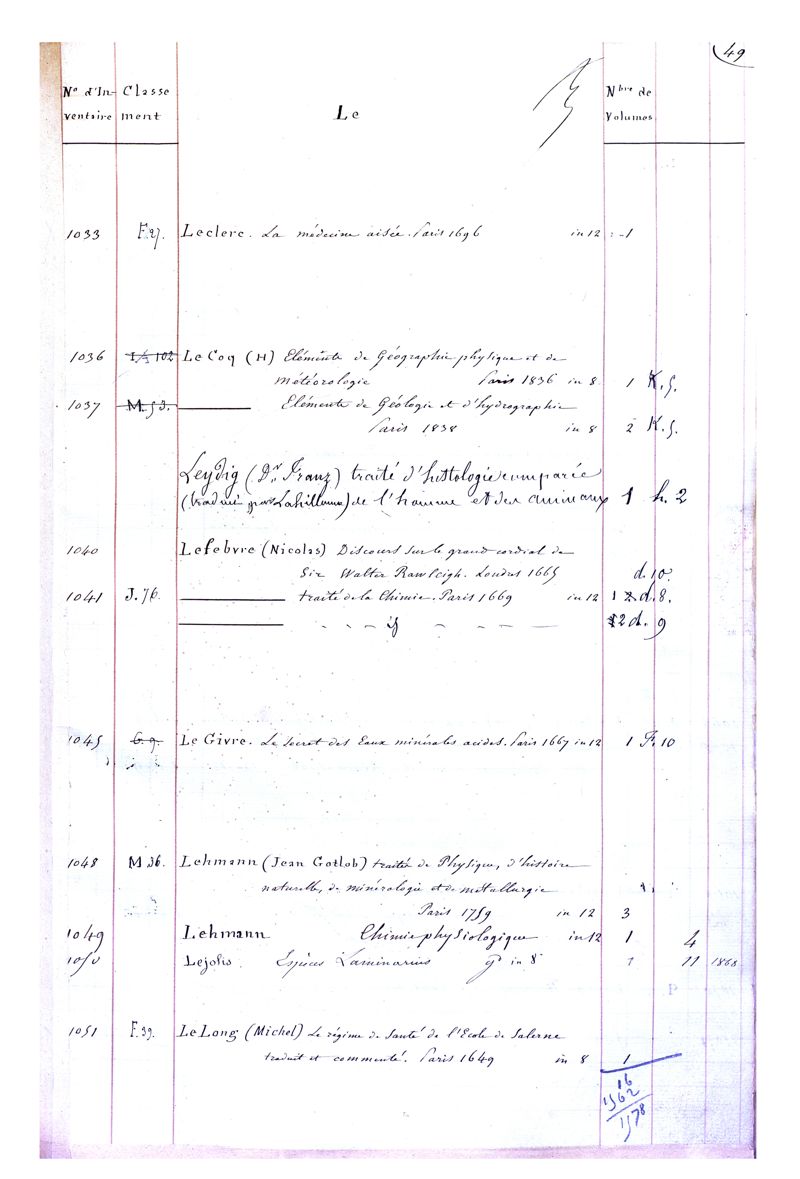 49
N° d'In- Classe Nbre de
ventaire ment Le Volumes
1033 F.27. Leclerc. La médecine aisée. Paris 1696 in 12 1
1036 102 Le Coq (H) Eléments de Géographie physique et de
météorologie Paris 1836 in 8 1 K.5.
1037 M.53. Eléments de Géologie et d'hydrographie
Paris 1838 in 8 2 K.5.
Leydig (Dr Franz) traité d'histologie comparée
(traduit par Lahillonne) de l'homme et des animaux 1 h. 2
1040 Lefebvre (Nicolas) Discours sur le grand cordial de
Sir Walter Rawleigh. Londres 1665 d.10.
1041 J.76. traité de la Chimie. Paris 1669 in 12 1 2 d.8.
if 2 d. 9
1045 6.9. Le Givre. Le secret des Eaux minérales acides. Paris 1667 in 12 1 F.10
1048 M 36. Lehmann (Jean Gotlob) traités de Physique, d'histoire
naturelle, de minéralogie et de métallurgie
Paris 1759 in 12 3
1049 Lehmann Chimie physiologique in 12 1 4
1050 Lejolis Espèces Laminarius gd in 8 1 11 1868
1051 F.39. Le Long (Michel) Le régime de santé de l'Ecole de Salerne
traduit et commenté. Paris 1649 in 8 1
16
1562
1578